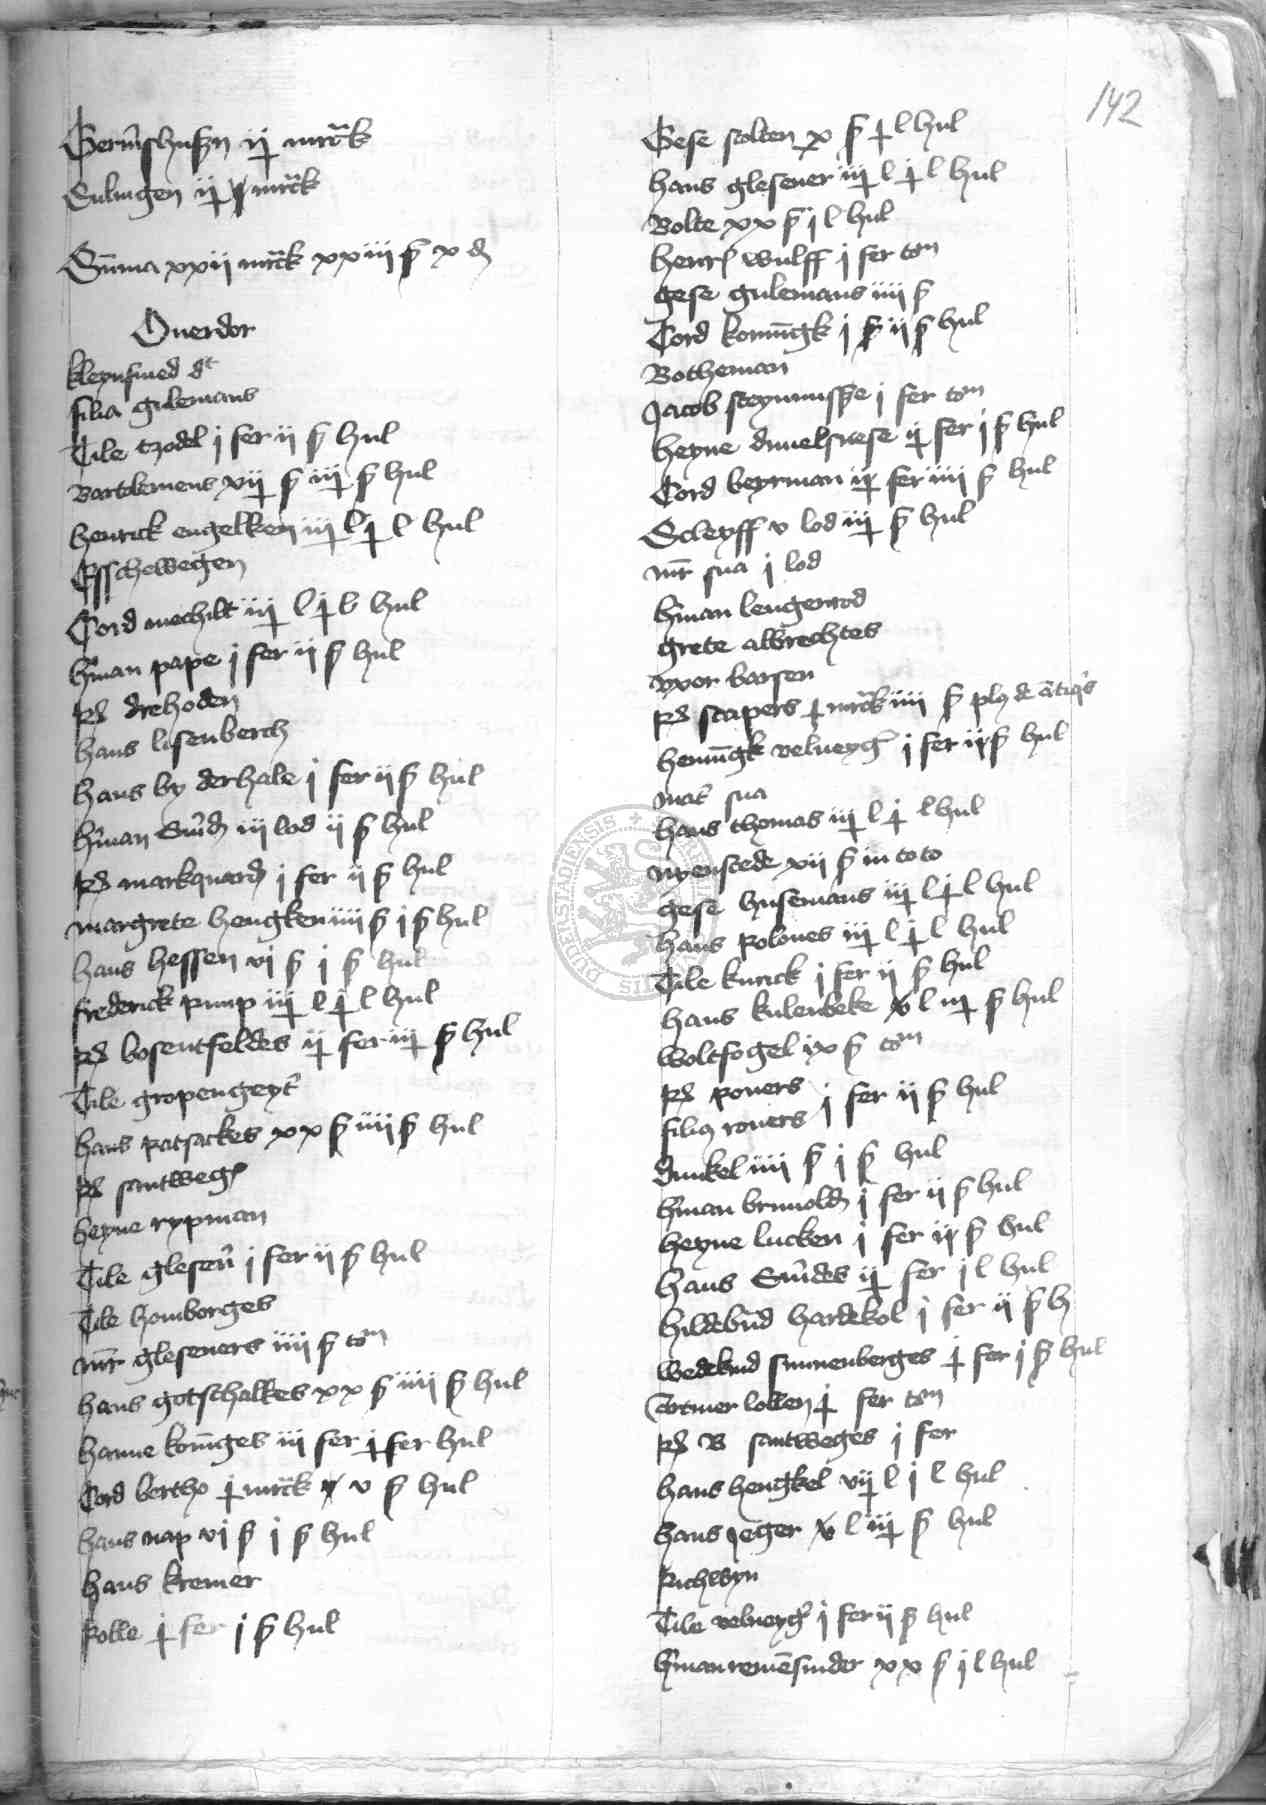 142
Germshusen ij marck
Sulingen ij marck
Summa xxij marck xxiiij ß x d
Ouerdor
kleynsmed dt
filia gulemans
Tile tzodel j fer ij ß hul
Bartolemeus xij ß iij ß hul
henrick engelken iij l j l hul
Esschewegen
Cord mechilt iij l j l hul
herman pape j fer ij ß hul
rel drehoden
hans losenberch
hans by der hale j fer ij ß hul
herman Smed iij lod ij ß hul
rel markquard j fer ij ß hul
margrete hengken iiij ß j ß hul
hans hessen vj ß j ß hul
frederick pump iij l j l hul
rel bosentfeldes ij fer iij ß hul
Tile gropengeyt
hans ratsackes xx ß iiij ß hul
rel santweg
heyne rypman
Tile glesen j fer ij ß hul
Tile homborges
mr gleseners iiij ß tom
hans gotschalkes xx ß iiij ß hul
hanne konges iij fer j fer hul
Cord bertho j marck v ß hul
hans nap vj ß j ß hul
hans kremer
Rolle j fer j ß hul
Gese stolten x ß j l hul
hans glesener iij l j l hul
Bolte xx ß j l hul
henr wulff j fer tom
gese gulemans iiij ß
Cord konngk j ß ij ß hul
Botheman
Jacob j fer tom
heyne duuelsnese ij fer j ß hul
Cord beyrman ij fer iiij ß hul
Scleyff v lod iij ß hul
mr sua j lod
herman lengenrod
grete albrechtes
vxor barsen
rel scapers j marck iiij ß plus de antiquis
henngk velueyg j fer ij ß hul
mat sua
hans thomas iij l j l hul
nyenstede xij ß in toto
gese husemans iij l j l hul
hans polones iij l j l hul
Tile kunck j fer ij ß hul
hans kulenbeke v l iij ß hul
woltfogel ix ß tom
rel rouers
filius rouers j fer ij ß hul
dunkel iiij ß j ß hul
herman brunold j fer ij ß hul
heyne lucken j fer ij ß hul
hans Smedes ij fer j l hul
hildebrand hardekol j fer ij ß h
wedekind sunnenberges j fer j ß hul
Cortmer lollen j fer tom
rel B santweges j fer
hans hengkel vij l j l hul
hans jeger v l iij ß hul
Richwyn
Tile velueyg j fer ij ß hul
herman remensnider xx ß j l hul